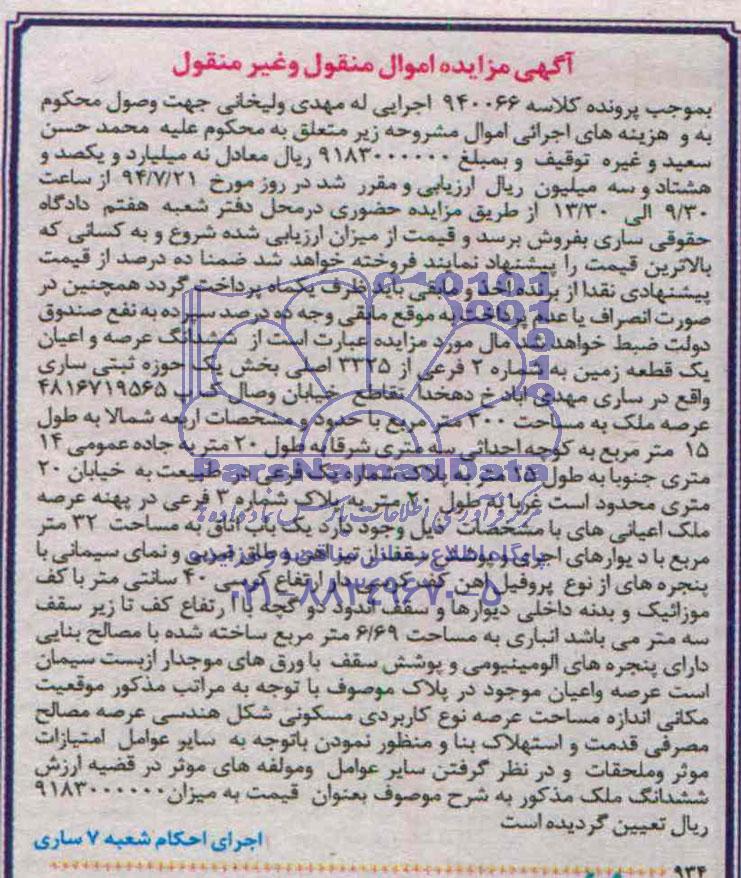 آگهی مزایده اموال منقول وغیر منقول
بموجب پرونده کلاسه ۹۴۰۰۶۶ اجرایی له مهدی ولیخانی جهت وصول محکوم
به و هزینه های اجرائی اموال مشروحه زیر متعلق به محکوم علیه محمد حسن
سعید و غیره توقیف و بمبلغ ۹۱۸۳۰۰۰۰۰۰ ریال معادل نه میلیارد و یکصد و
هشتاد و سه میلیون ریال ارزیابی و مقرر شد در روز مورخ ۹۴/۷/۲۱ از ساعت
۹/۳۰ الی ۱۳/۳۰ از طریق مزایده حضوری درمحل دفتر شعبه هفتم دادگاه
حقوقی ساری بفروش برسد و قیمت از میزان ارزیابی شده شروع و به کسانی که
بالاترین قیمت را پیشنهاد نمایند فروخته خواهد شد ضمنا ده درصد از قیمت
پیشنهادی نقدا از برنده اخذ و مابقی باید ظرف یکماه پرداخت گردد همچنین در
صورت انصراف یا عدم پرداخت به موقع مابقی وجه ده درصد سپرده به نفع صندوق
دولت ضبط خواهد شد مال مورد مزایده عبارت است از ششدانگ عرصه و اعیان
یک قطعه زمین به شماره ۲ فرعی از ۳۳۲۵ اصلی بخش یک حوزه ثبتی ساری
واقع در ساری مهدی آباد خ دهخدا تقاطع خیابان وصال کدپ ۴۸۱۶۷۱۹۵۶۵
عرصه ملک به مساحت ۳۰۰ متر مربع با حدود و مشخصات اربعه شمالا به طول
۱۵ متر مربع به کوچه احداثی سه متری شرقا به طول ۲۰ متر به جاده عمومی ۱۴
متری جنوبا به طول ۱۵ متر به پلاک شماره یک فرعی در طبیعت به خیابان ۲۰
متری محدود است غربا به طول ۲۰ متر به پلاک شماره ۳ فرعی در پهنه عرصه
ملک اعیانی های با مشخصات ذیل وجود دارد یک باب اتاق به مساحت ۳۲ متر
مربع با دیوارهای اجری و پوشش سقف از تیر آهن و طاق ضربی و نمای سیمانی با
پنجره های از نوع پروفیل آهن کف کرسی دار ارتفاع کرسی ۴۰ سانتی متر با کف
موزائیک و بدنه داخلی دیوارها و سقف اندود دو گچه با ارتفاع کف تا زیر سقف
سه متر می باشد انباری به مساحت ۶/۶۹ متر مربع ساخته شده با مصالح بنایی
دارای پنجره های الومینیومی و پوشش سقف با ورق های موجدار ازبست سیمان
است عرصه واعیان موجود در پلاک موصوف با توجه به مراتب مذکور موقعیت
مکانی اندازه مساحت عرصه نوع کاربردی مسکونی شکل هندسی عرصه مصالح
مصرفی قدمت و استهلاک بنا و منظور نمودن باتوجه به سایر عوامل امتیازات
موثر وملحقات و در نظر گرفتن سایر عوامل ومولفه های موثر در قضیه ارزش
ششدانگ ملک مذکور به شرح موصوف بعنوان قیمت به میزان ۹۱۸۳۰۰۰۰۰۰
ریال تعیین گردیده است
اجرای احکام شعبه ۷ ساری
۹۳۴
ParsNamadData
۰۲۱-۸۸۳۴۹۶۷۰-۵